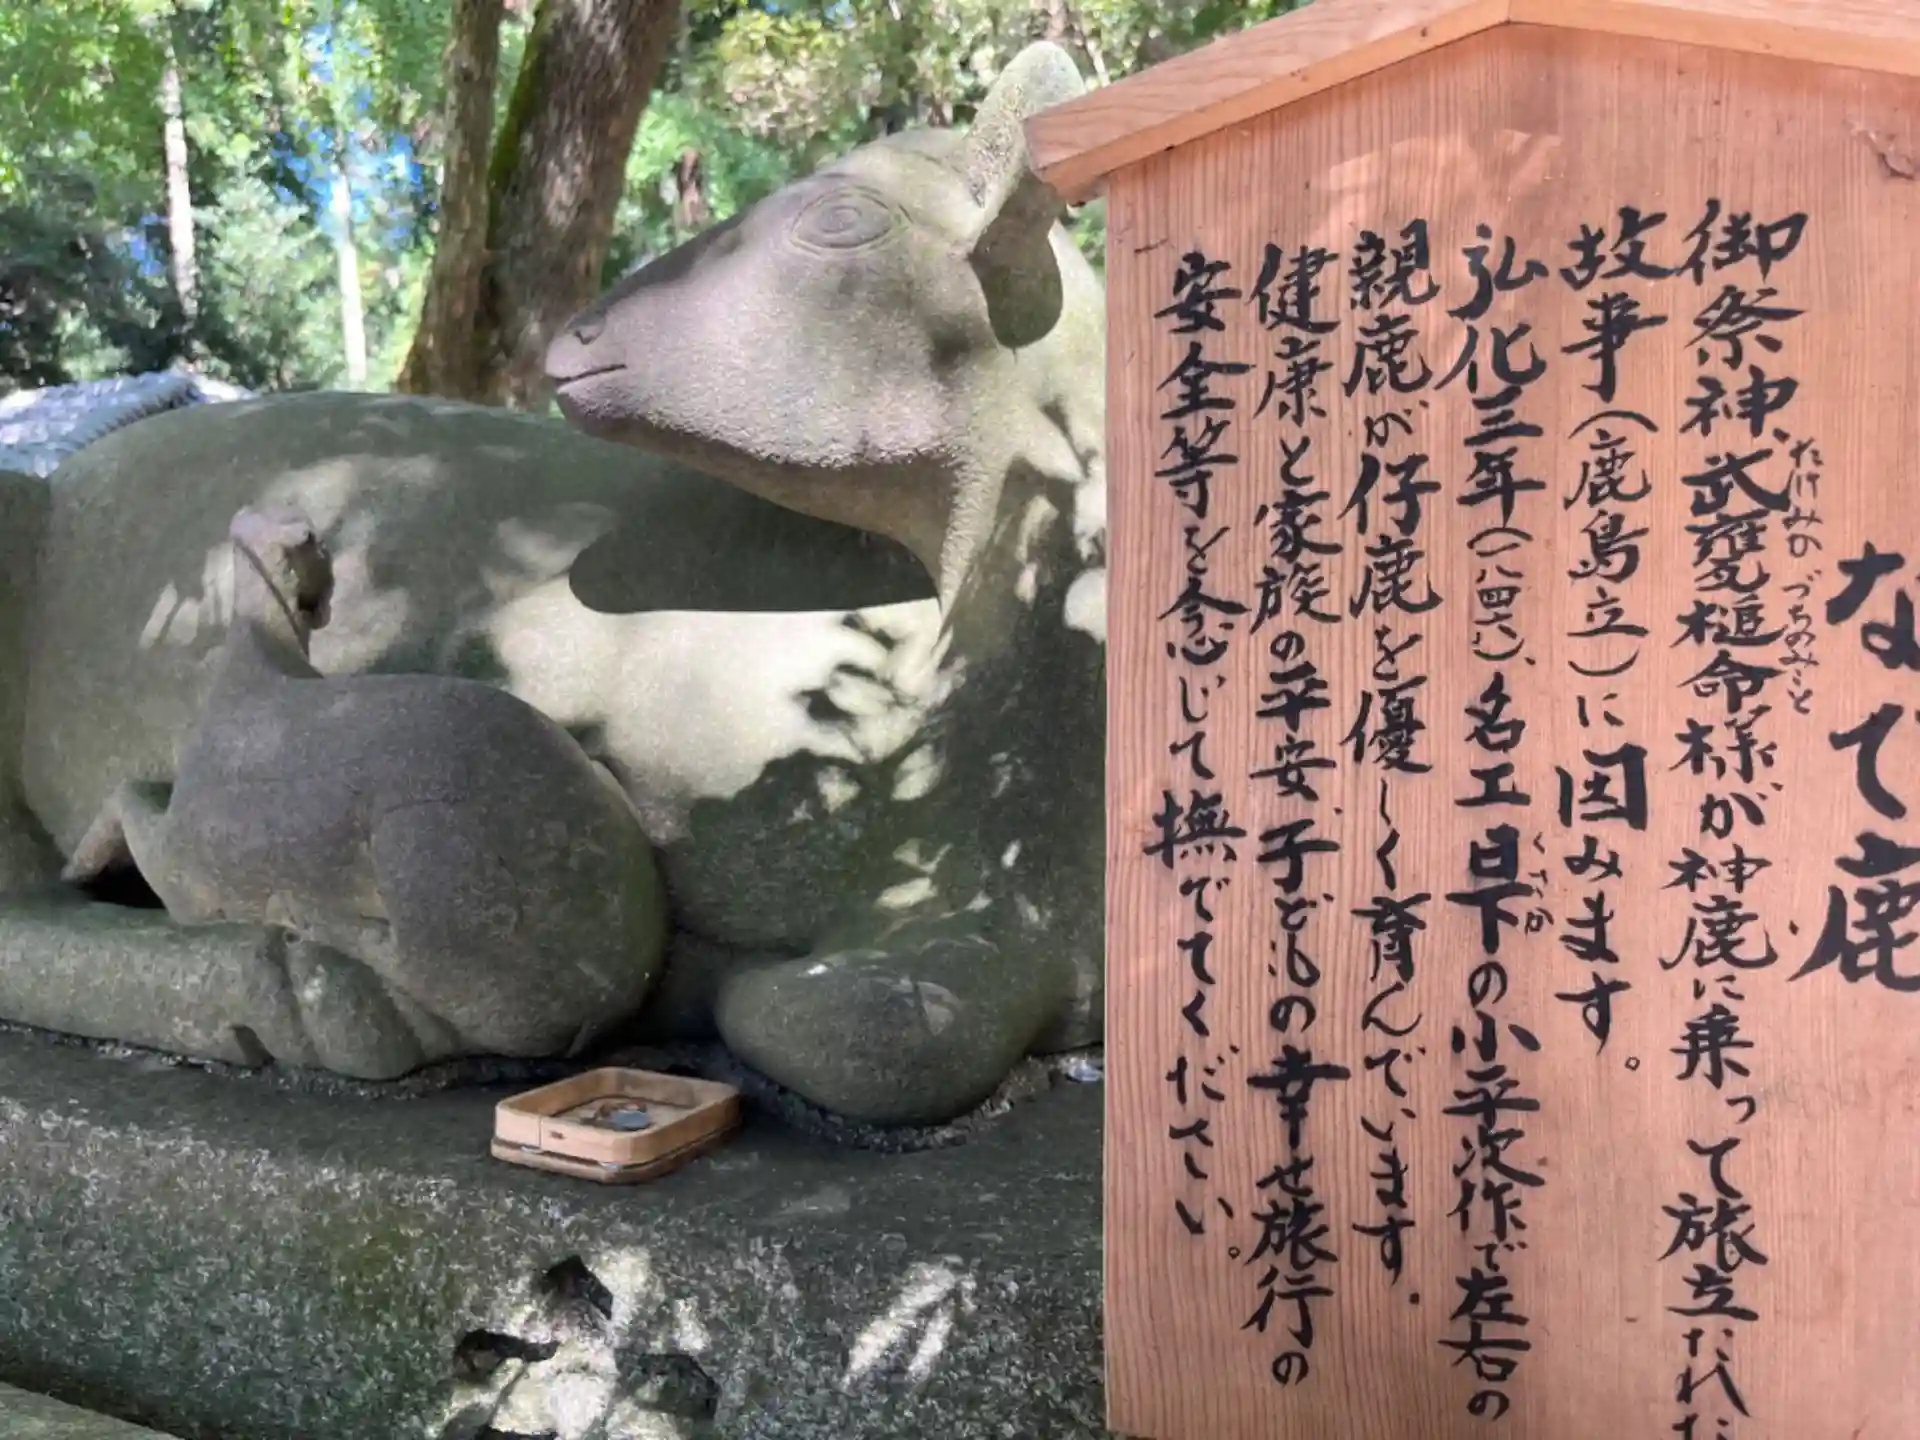 なで鹿
御祭神、武甕槌命様が神鹿に乗って旅立たれた
たけみか づちのみこと
故事(鹿島立)に因みます。
弘化三年(一八四六)、名工日下の小平次作で左右の
くさか
親鹿が仔鹿を優しく育んでいます。
健康と家族の平安、子どもの幸せ旅行の
安全等を念じて撫でてください。